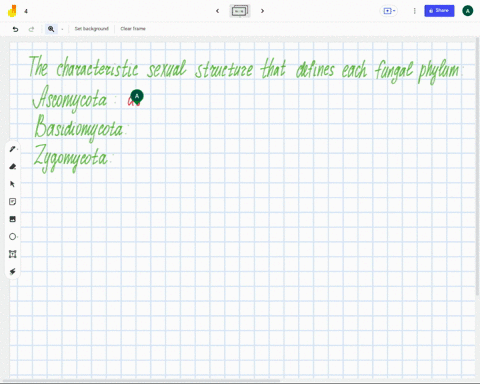 4
Share
A
Set background
Clear frame
The characteristic sexual structure that defines each fungal phylum:
Ascomycota : a
A
Basidiomycota:
Zygomycota: